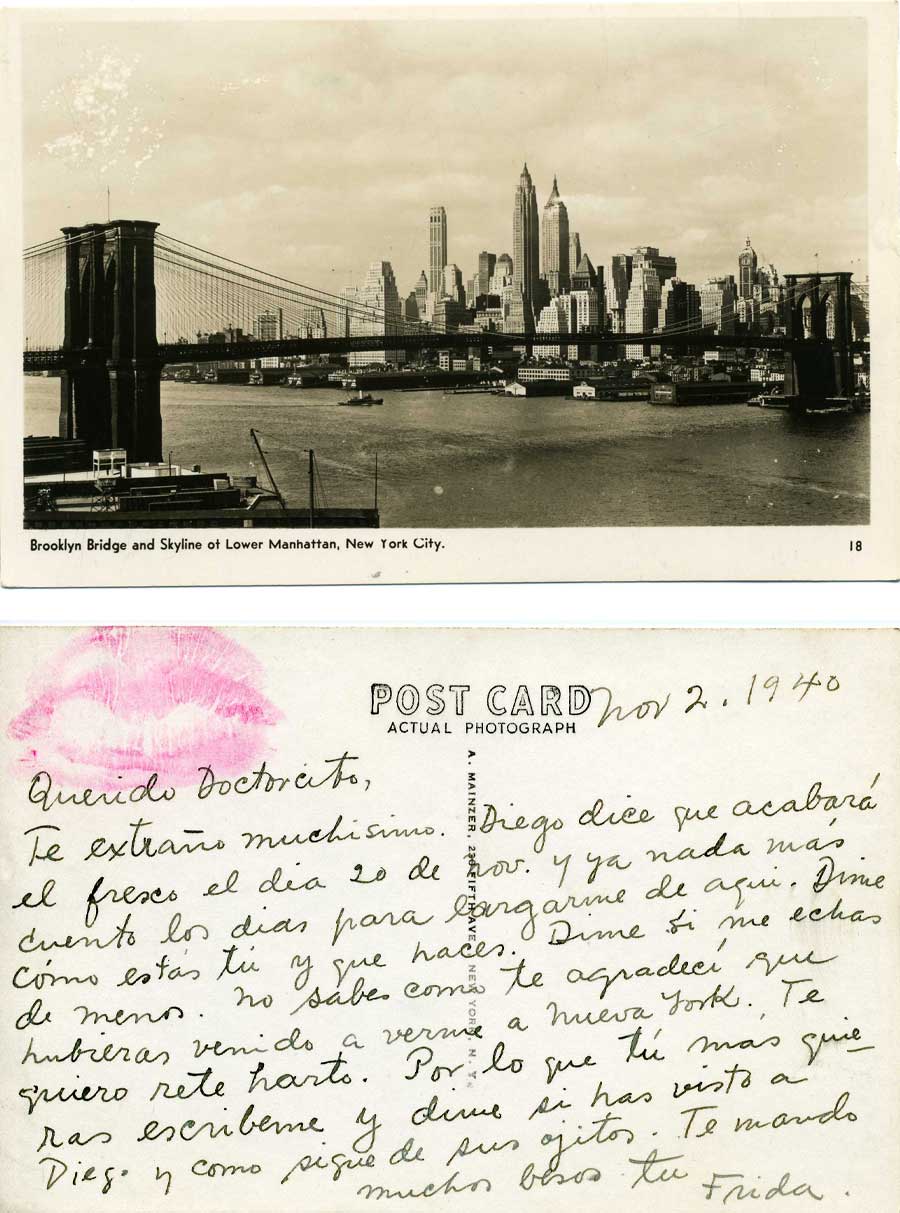 Brooklyn Bridge and Skyline of Lower Manhattan, New York City.
18
POST CARD
ACTUAL PHOTOGRAPH
Nov 2. 1940
A. MAINZER, 230 FIFTH AVE NEW YORK, N. Y.
Querido Doctorcito,
Te extraño muchisimo. Diego dice que acabará
el fresco el dia 20 de nov. y ya nada más
cuento los dias para largarme de aqui. Dime
cómo estás tú y que haces. Dime si me echas
de menos. no sabes como te agradecí que
hubieras venido a verme a Nueva York. Te
quiero rete harto. Por lo que tú más quie-
ras escribeme y dime si has visto a
Diego y como sigue de sus ojitos. Te mando
muchos besos tu Frida.